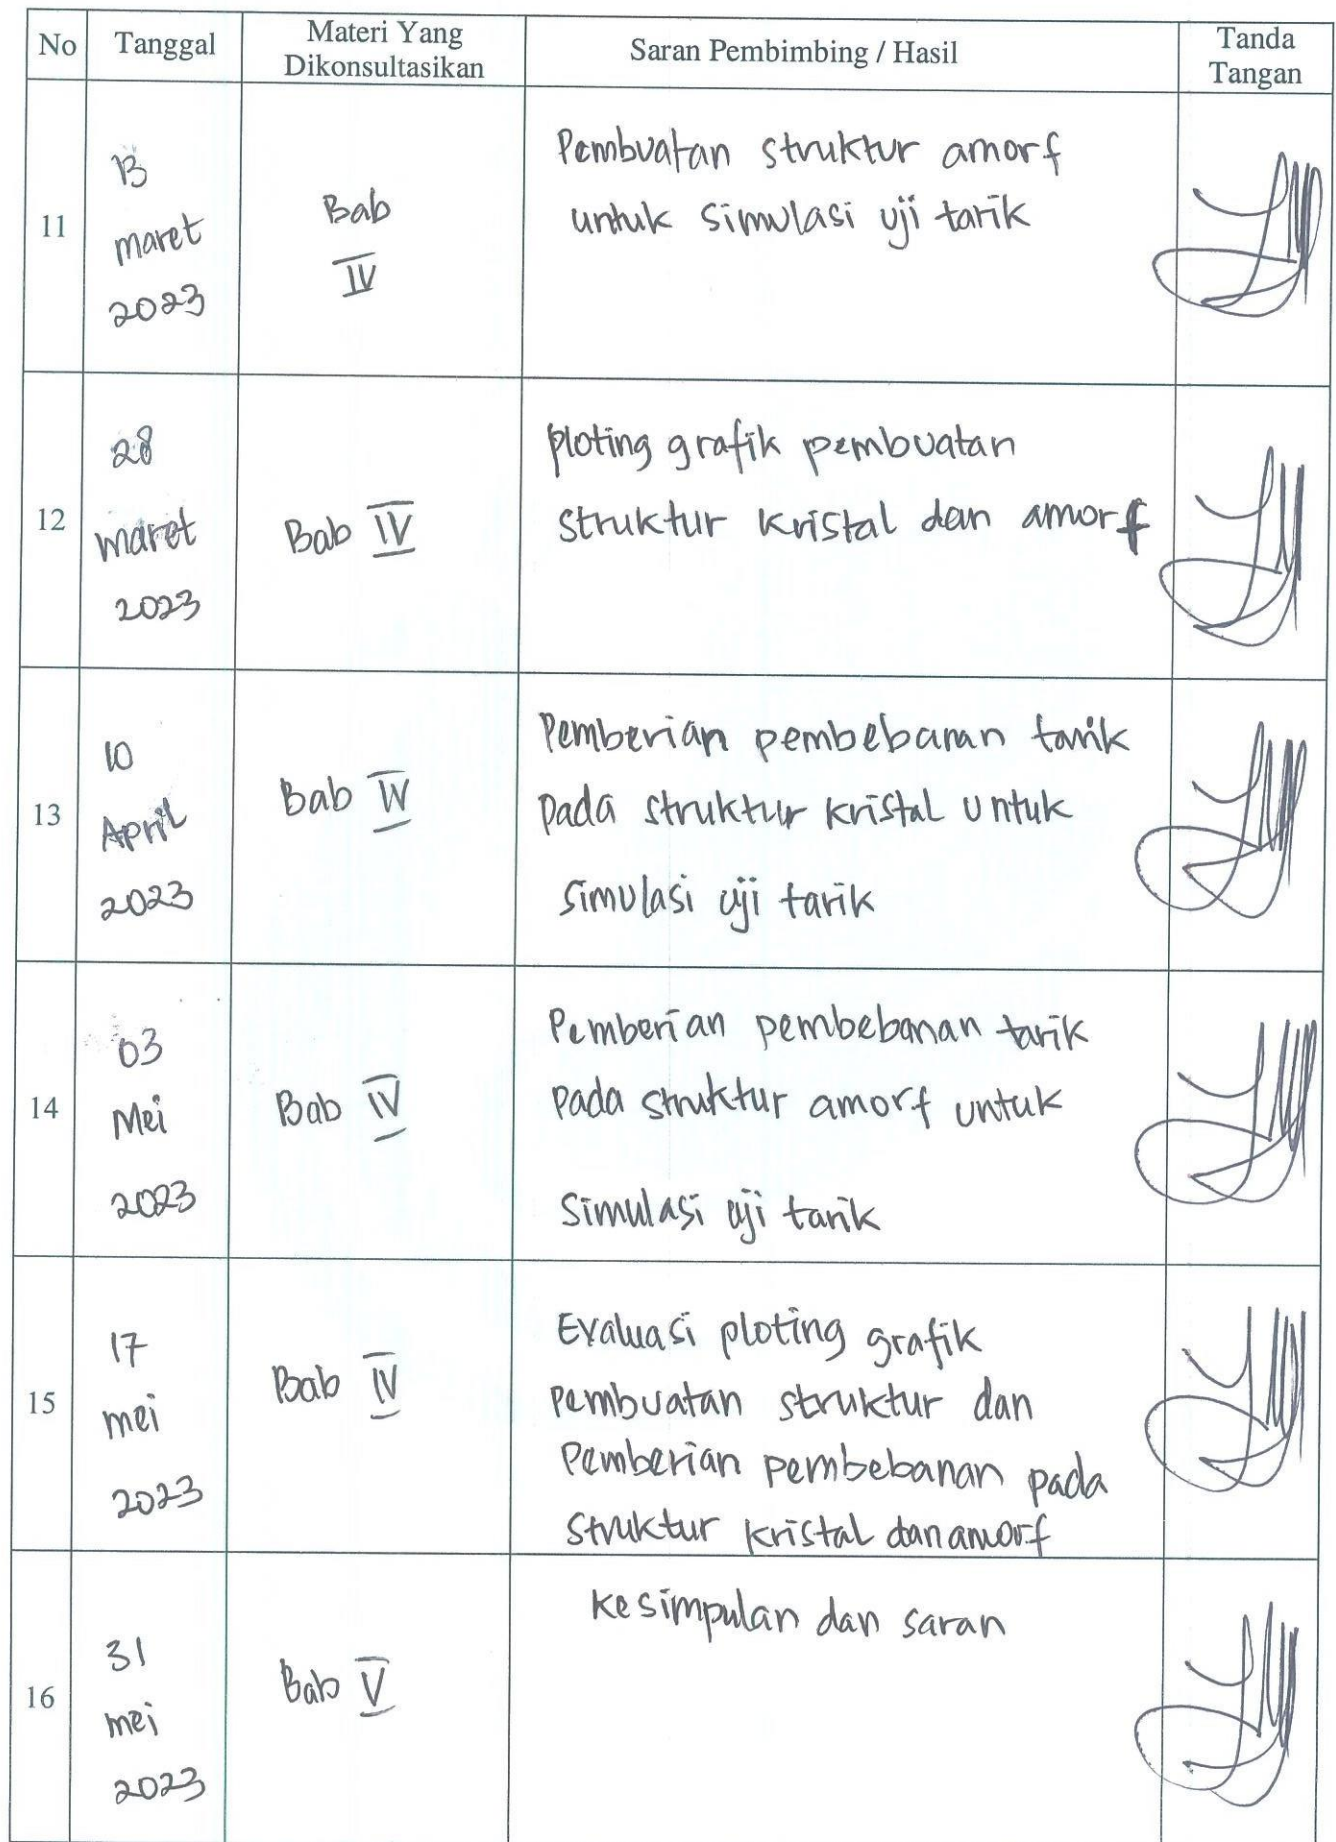 No Tanggal Materi Yang Dikonsultasikan Saran Pembimbing / Hasil Tanda Tangan
11
13
maret
2023
Bab
IV
Pembuatan struktur amorf
untuk simulasi uji tarik
12
28
maret
2023
Bab IV
ploting grafik pembuatan
struktur kristal dan amorf
13
10
April
2023
Bab IV
Pemberian pembebanan tarik
pada struktur kristal untuk
simulasi uji tarik
14
03
Mei
2023
Bab IV
Pemberian pembebanan tarik
pada struktur amorf untuk
simulasi uji tarik
15
17
mei
2023
Bab IV
Evaluasi ploting grafik
pembuatan struktur dan
Pemberian pembebanan pada
struktur kristal dan amorf
16
31
mei
2023
Bab V
kesimpulan dan saran